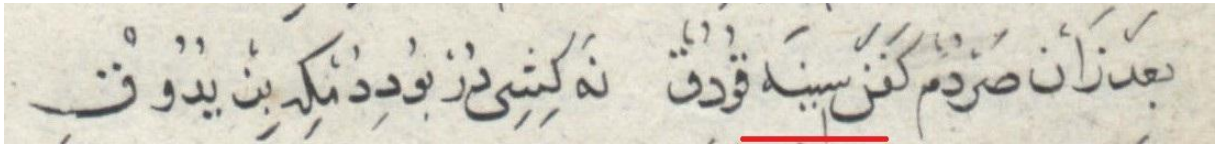 بَعْدَزَاَنْ صَرْدُمْ كَفَنْ سِينَه قُودُقْ نَه كِشِى دُرْ بُو دِدُمْكِه بِنْ يُدُوقْ